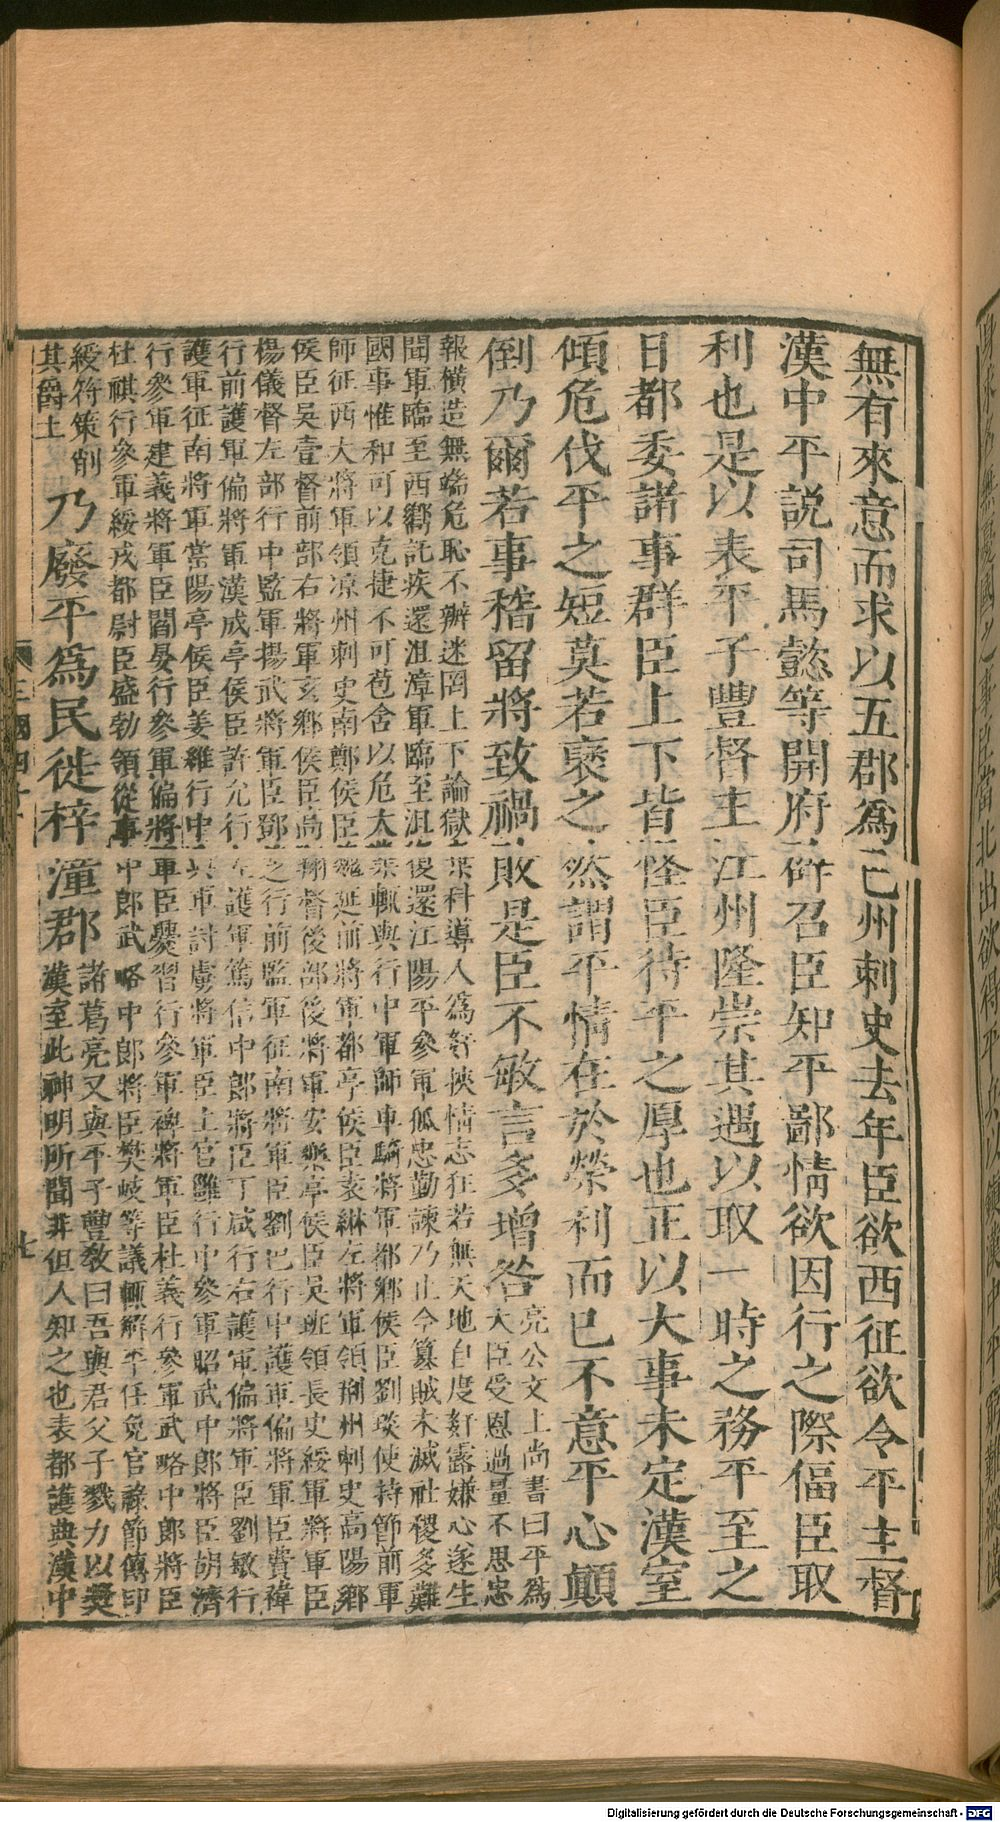 無有來意而求以五郡爲巴州刺史去年臣欲西征欲令平主督
漢中平説司馬懿等開府辟召臣知平鄙情欲因行之際偪臣取
利也是以表平子豐督主江州隆崇其遇以取一時之務平至之
日都委諸事群臣上下皆怪臣待平之厚也正以大事未定漢室
傾危伐平之短莫若褒之然謂平情在於榮利而已不意平心顛
倒乃爾若事稽留將致禍敗是臣不敏言多增咎
亮公文上尚書曰平爲
大臣受恩過量不思忠
報橫造無端危恥不辦迷罔上下論獄棄科導人爲姧挾情志狂若無天地自度姧露嫌心遂生
聞軍臨至西嚮託疾還沮漳軍臨至沮復還江陽平參軍狐忠勤諫乃止今篡賊未滅社稷多難
國事惟和可以克捷不可苞舍以危大業輒與行中軍師車騎將軍都鄉侯臣劉琰使持節前軍
師征西大將軍領凉州刺史南鄭侯臣魏延前將軍都亭侯臣袁綝左將軍領荊州刺史高陽鄉
侯臣吳壹督前部右將軍玄鄉侯臣高翔督後部後將軍安樂亭侯臣吳班領長史綏軍將軍臣
楊儀督左部行中監軍揚武將軍臣鄧芝行前監軍征南將軍臣劉巴行中護軍偏將軍臣費禕
行前護軍偏將軍漢成亭侯臣許允行左護軍篤信中郎將臣丁咸行右護軍偏將軍臣劉敏行
護軍征南將軍當陽亭侯臣姜維行中典軍討虜將軍臣上官雝行中參軍昭武中郎將臣胡濟
行參軍建義將軍臣閻晏行參軍偏將軍臣爨習行參軍裨將軍臣杜義行參軍武略中郎將臣
杜祺行參軍綏戎都尉臣盛勃領從事中郎武略中郎將臣樊岐等議輒解平任免官祿節傳印
綬符策削
其爵土
乃廢平爲民徙梓潼郡
諸葛亮又與平子豐敎曰吾與君父子戮力以奬
漢室此神明所聞非但人知之也表都護典漢中
Digitalisierung gefördert durch die Deutsche Forschungsgemeinschaft - DFG